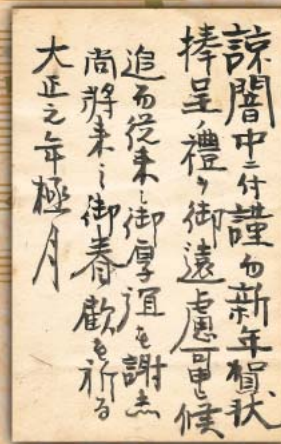 諒闇中ニ付謹而新年賀状
捧呈ノ禮ヲ御遠慮可申候
追而従来之御厚誼を謝し
尚将来之御眷歓を祈る
大正元年極月